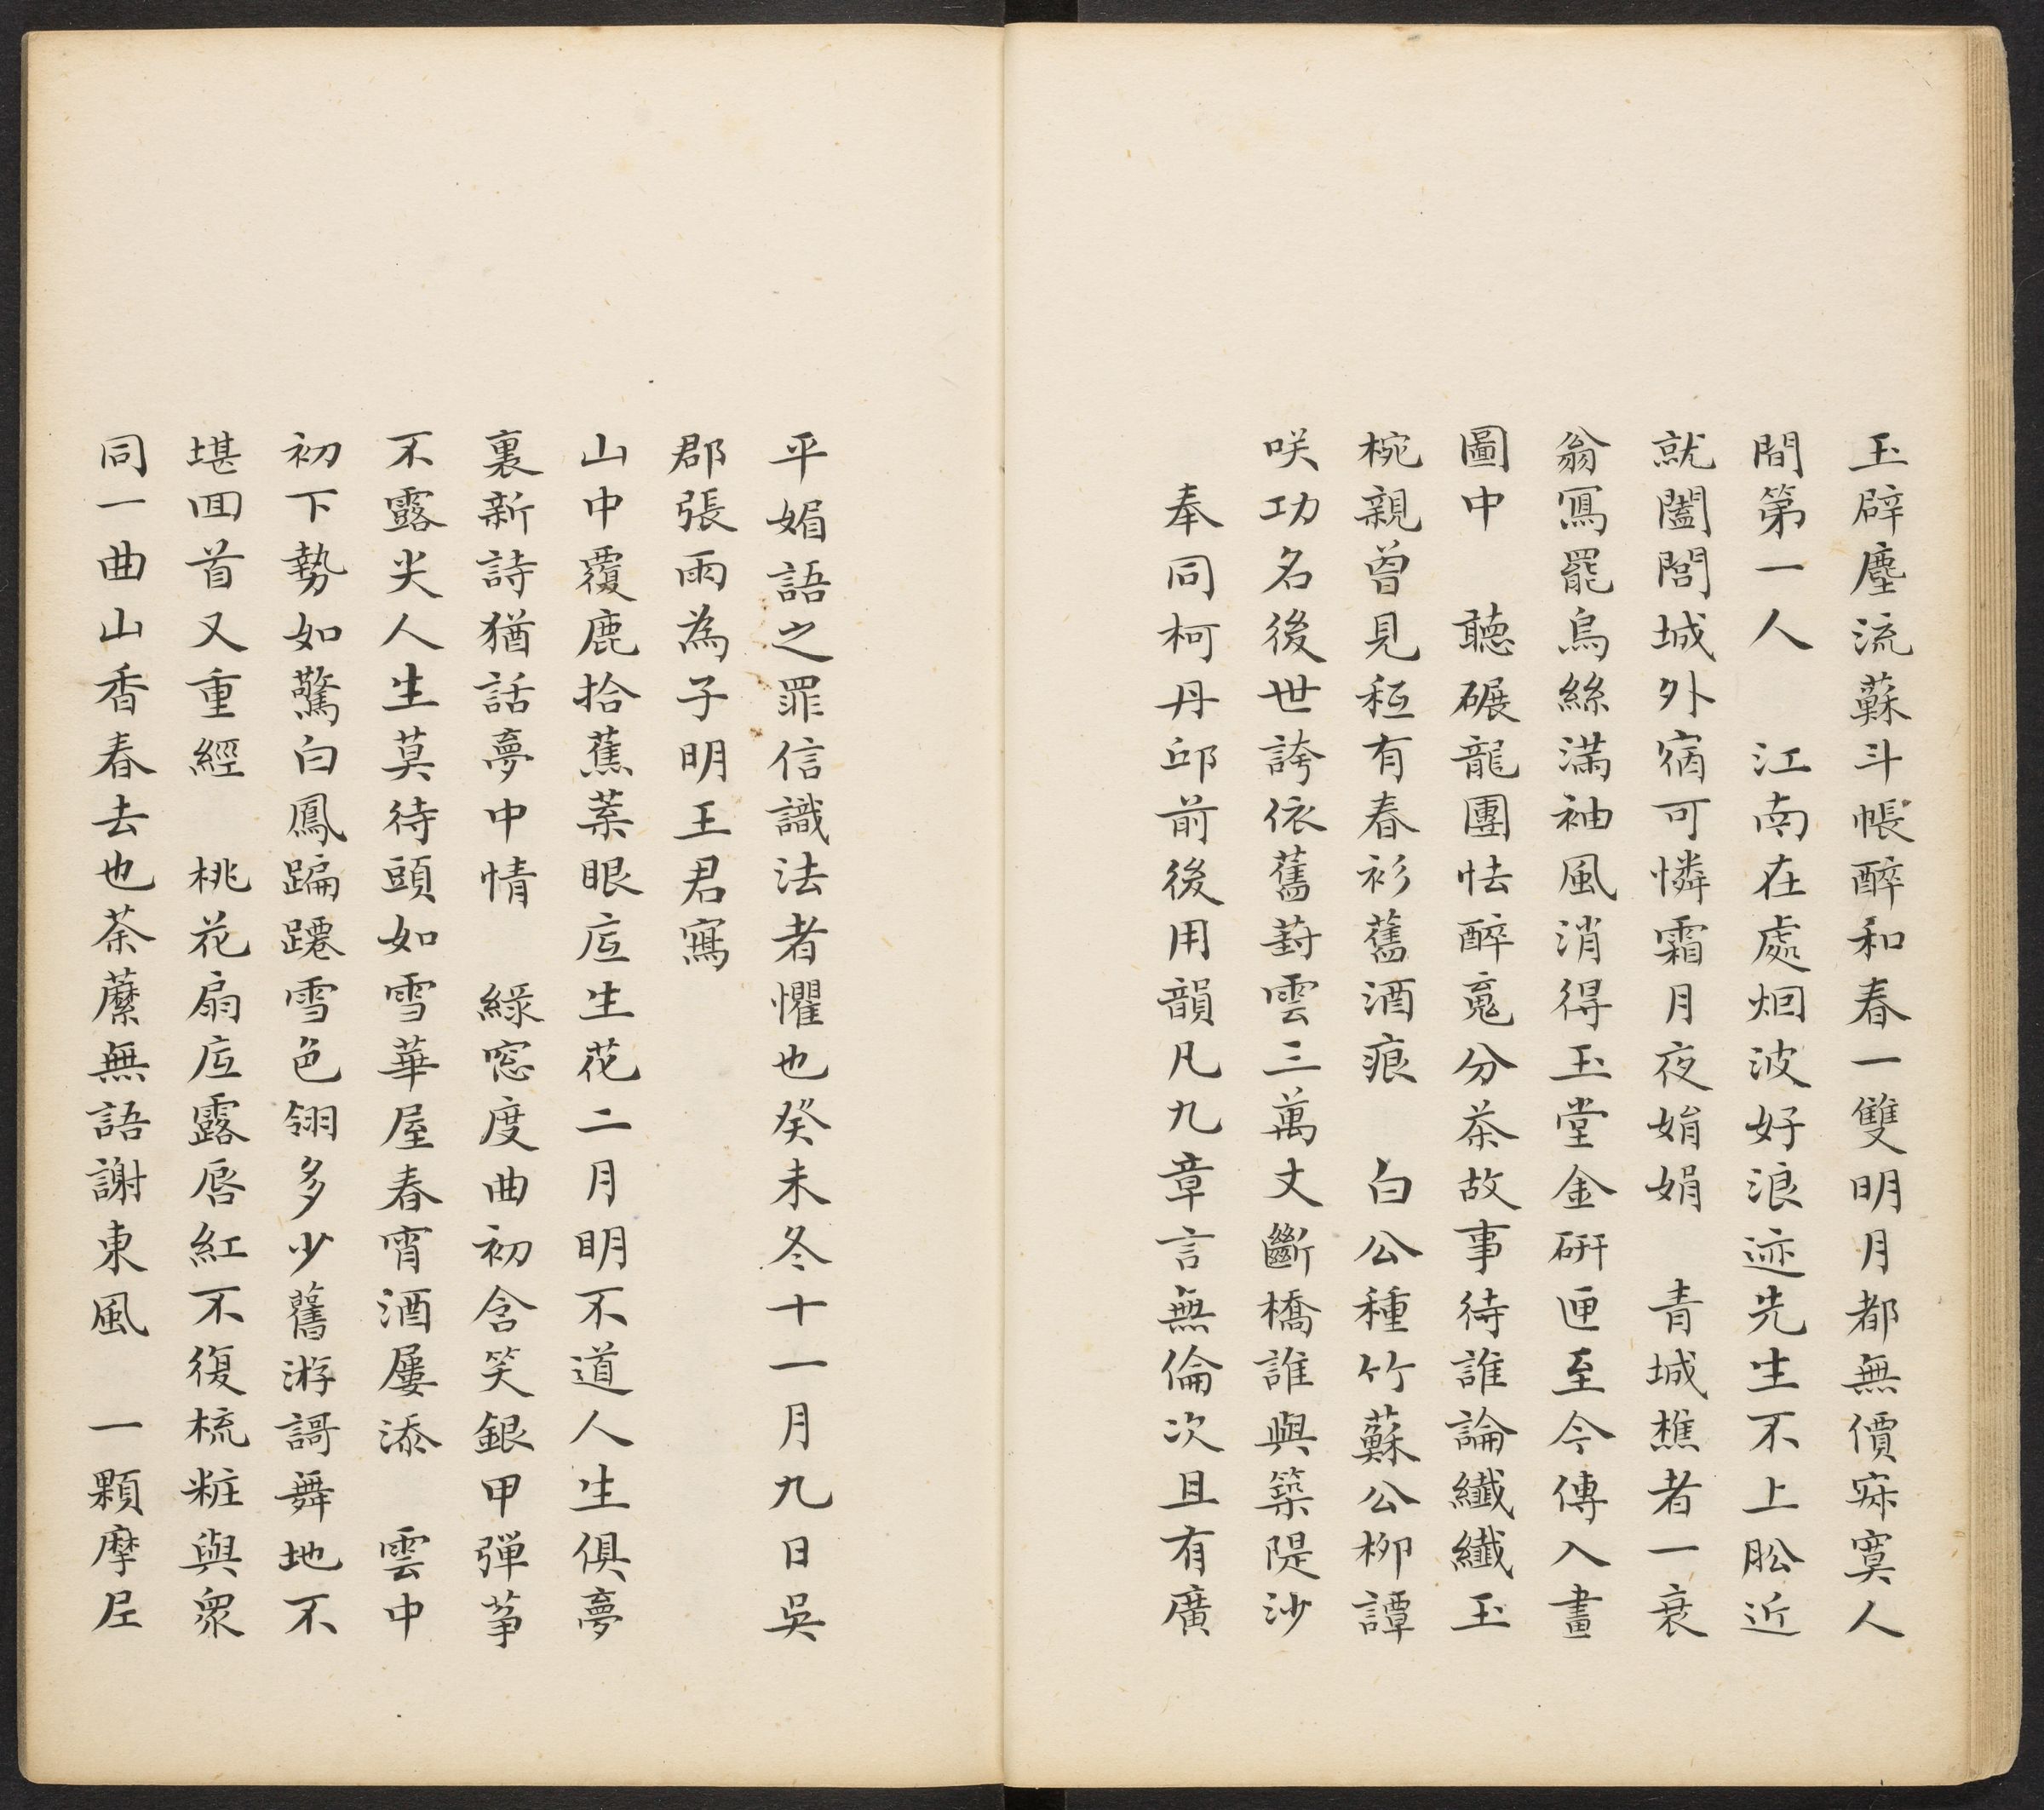 玉辟塵流蘇斗帳醉和春一雙明月都無價寂寞人
間第一人　江南在處烟波好浪迹先生不上舩近
就闔閭城外宿可憐霜月夜娟娟　青城樵者一衰
翁寫罷烏絲滿袖風消得玉堂金硏匣至今傳入畫
圖中　聽碾龍團怯醉䰟分茶故事待誰論纖纖玉
椀親曾見秪有春衫舊酒痕　白公種竹蘇公柳譚
咲功名後世誇依舊葑雲三萬丈斷橋誰與築隄沙
奉同柯丹邱前後用韻凡九章言無倫次且有廣
平媚語之罪信識法者懼也癸未冬十一月九日吳
郡張雨為子明王君寫
山中覆鹿拾蕉葉眼底生花二月明不道人生俱夢
裏新詩猶話夢中情　綠窓度曲初含笑銀甲彈筝
不露尖人生莫待頭如雪華屋春宵酒屢添　雲中
初下勢如驚白鳳蹁躚雪色翎多少舊游謌舞地不
堪囬首又重經　桃花扇底露唇紅不復梳粧與衆
同一曲山香春去也荼䕷無語謝東風　一顆摩尼